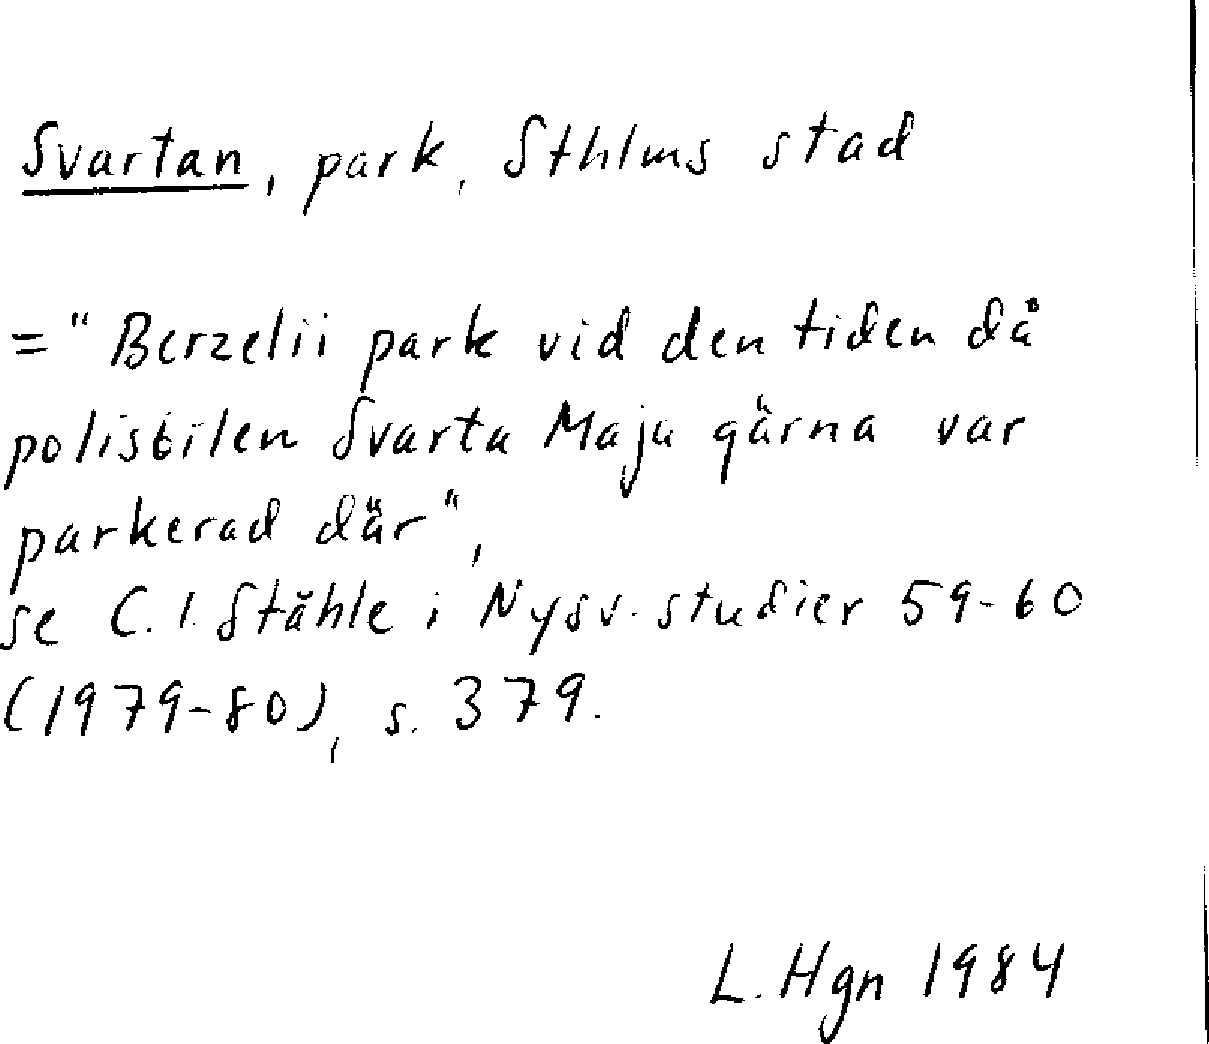 Svartan, park, Sthlms stad
= "Berzelii park vid den tiden då
polisbilen Svarta Maja gärna var
parkerad där",
se C. I. Ståhle i Nysv. studier 59-60
(1979-80), s. 379.
L. Hgn 1984